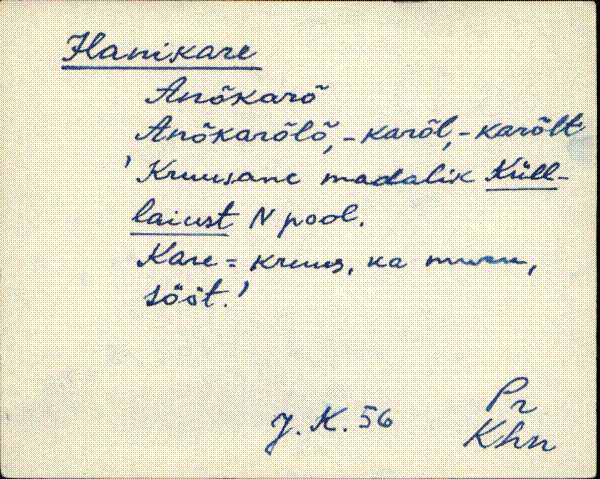 Hanikare
Anõkarõ
Anõkarõlõ, -karõl, -karõlt
'Kruusane madalik Küll-
laiust N pool.
Kare = kruus, ka muru,
sööt.'
J. K. 56
Pr
Khn